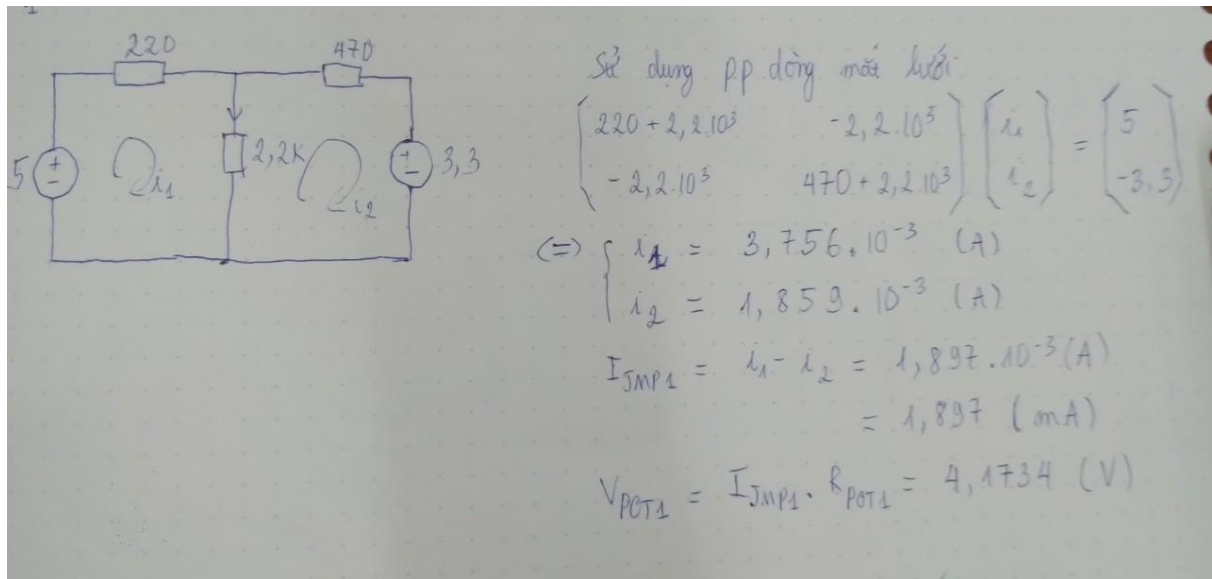 220
470
5
+
-
i₁
2,2K
i₂
+
-
3,3
Sử dụng p.p dòng mắt lưới
220 + 2,2.10³ -2,2.10³ i₁ = 5
-2,2.10³ 470 + 2,2.10³ i₂ -3,3
(=) { i₁ = 3,756.10⁻³ (A)
i₂ = 1,859.10⁻³ (A)
I_JMP1 = i₁ - i₂ = 1,897.10⁻³ (A)
= 1,897 (mA)
V_POT1 = I_JMP1 . R_POT1 = 4,1734 (V)